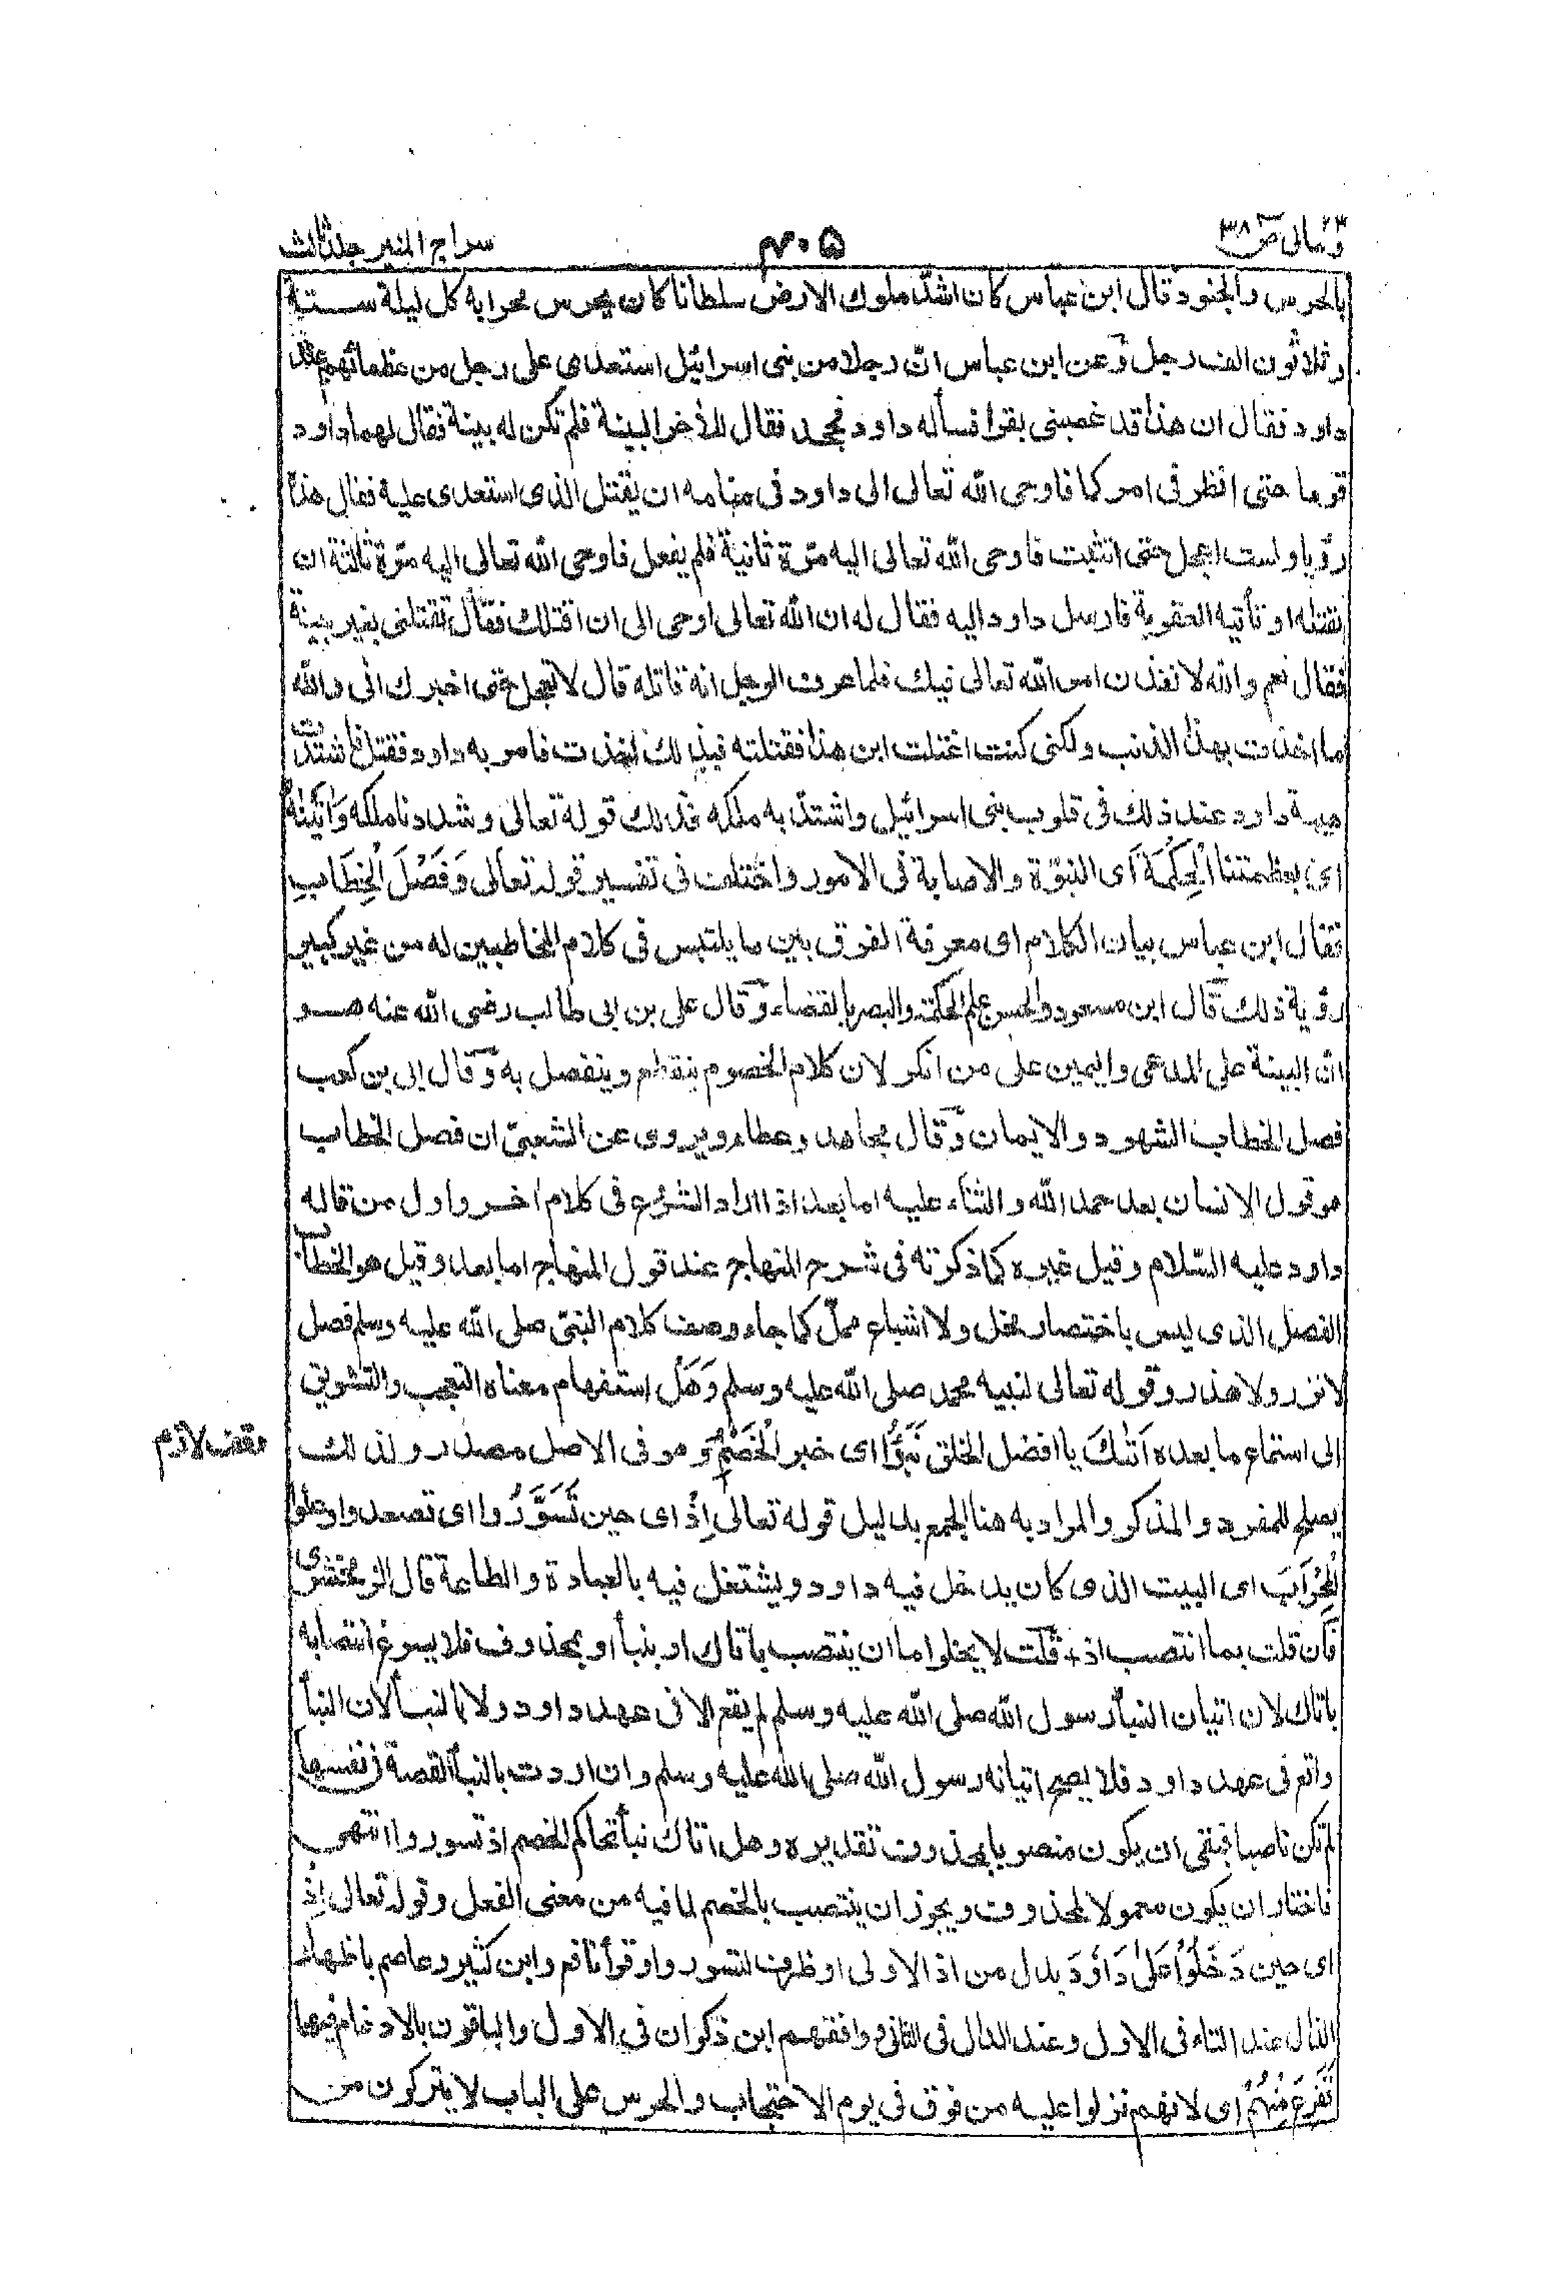 ومالى ٢٣ ص ٣٨
٤٠٥
سراج المنير جلد ثالث
بالحرس والجنود قال ابن عباس كان اشدّ ملوك الارض سلطانا كان يحرس محرابه كل ليلة ستة
وثلاثون الف رجل وعن ابن عباس انّ رجلا من بنى اسرائيل استعدى على رجل من عظمائهم عند
داود فقال ان هذا قد غصبنى بقرا فسأله داود فجحد فقال للأخر البينة فلم تكن له بينة فقال لهما داود
قوما حتى انظر فى امركما فاوحى الله تعالى الى داود فى منامه ان يقتل الذى استعدى عليه فقال هذا
رؤيا ولست اعجل حتى اتثبت فاوحى الله تعالى اليه مرّة ثانية فلم يفعل فاوحى الله تعالى اليه مرّة ثالثة ان
نقتله او تأتيه العقوبة فارسل داود اليه فقال له ان الله تعالى اوحى الى ان اقتلك فقال تقتلنى بغير بينة
فقال نعم والله لا نفذن امر الله تعالى فيك فلما عرف الرجل انه قاتله قال لا تعجل حتى اخبرك انى والله
ما اخذت بهذا الذنب ولكنى كنت اغتلت ابن هذا فقتلته فبذلك اخذت فامر به داود فقتل فاشتدت
هيبة داود عند ذلك فى قلوب بنى اسرائيل واشتدّ به ملكه فذلك قوله تعالى وشددنا ملكه وَاٰتَيْنٰهُ
اى بعظمتنا الْحِكْمَةَ اى النبوّة والاصابة فى الامور واختلف فى تفسير قوله تعالى وَفَصْلَ الْخِطَابِ
فقال ابن عباس بيان الكلام اى معرفة الفرق بين ما يلتبس فى كلام المخاطبين له من غير كبير
رؤية ذلك قال ابن مسعود والحسن علم الحكمة والبصر بالقضاء وقال على بن ابى طالب رضى الله عنه هو
انّ البينة على المدعى واليمين على من انكر لان كلام الخصوم ينقطع وينفصل به وقال ابى بن كعب
فصل الخطاب الشهود والايمان وقال مجاهد وعطاء ويروى عن الشعبىّ ان فصل الخطاب
هو قول الانسان بعد حمد الله والثناء عليه اما بعد اذا اراد الشروع فى كلام اخر واول من قاله
داود عليه السّلام وقيل غيره كما ذكرته فى شرح المنهاج عند قول المنهاج اما بعد وقيل هو الخطاب
الفصل الذى ليس باختصار مخل ولا اشباع مملّ كما جاء وصف كلام النبىّ صلى الله عليه وسلم فصل
لا نزر ولا هذر وقوله تعالى لنبيه محمد صلى الله عليه وسلم وَهَلْ استفهام معناه التعجب والتشويق
الى استماع ما بعده اَتٰىكَ يا افضل الخلق نَبَؤُا اى خبر الْخَصْمِ وهو فى الاصل مصدر ولذلك
وقف لازم
يصلح للمفرد والمذكر والمراد به هنا الجمع بدليل قوله تعالى اِذْ اى حين تَسَوَّرُوا اى تصعدوا وعلوا
الْمِحْرَابَ اى البيت الذى كان يدخل فيه داود ويشتغل فيه بالعبادة والطاعة قال الزمخشرى
فان قلت بما انتصب اذ قلت لا يخلو اما ان ينتصب باتاك او بنبأ او بمحذوف فلا يسوغ انتصابه
باتاك لان اتيان النبأ رسول الله صلى الله عليه وسلم لم يقع الا فى عهده داود ولا بالنبأ لان النبأ
واقع فى عهد داود فلا يصح اتيانه رسول الله صلى الله عليه وسلم وان اردت بالنبأ القصة فى نفسها
لم تكن ناصبا فبقى ان يكون منصوبا بمحذوف تقديره وهل اتاك نبأ تحاكم الخصم اذ تسوروا انتهى
فاختار ان يكون معمولا لمحذوف ويجوز ان ينتصب بالخصم لما فيه من معنى الفعل وقوله تعالى اِذْ
اى حين دَخَلُوْا عَلٰى دَاوٗدَ بدل من اذ الاولى او ظرف لتسوروا وقرأ نافع وابن كثير وعاصم باظهار
الذال عند التاء فى الاول وعند الدال فى الثانى ووافقهم ابن ذكوان فى الاول والباقون بالادغام فيهما
فَفَزِعَ مِنْهُمْ اى لانهم نزلوا عليه من فوق فى يوم الاحتجاب والحرس على الباب لا يتركون من